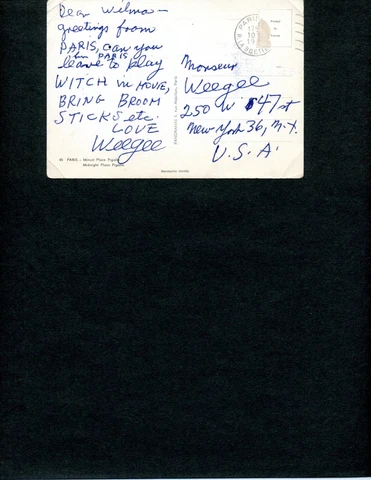 Dear Wilma—
greetings from
PARIS, can you
in PARIS
leave to play
WITCH in MOVIE,
BRING BROOM
STICKS etc.
LOVE
Weegee
46 PARIS - Minuit Place Pigalle
Midnight Place Pigalle
PARIS
Monsieur
Weegee
250 W 47 st
New York 36, N.Y.
U.S.A.